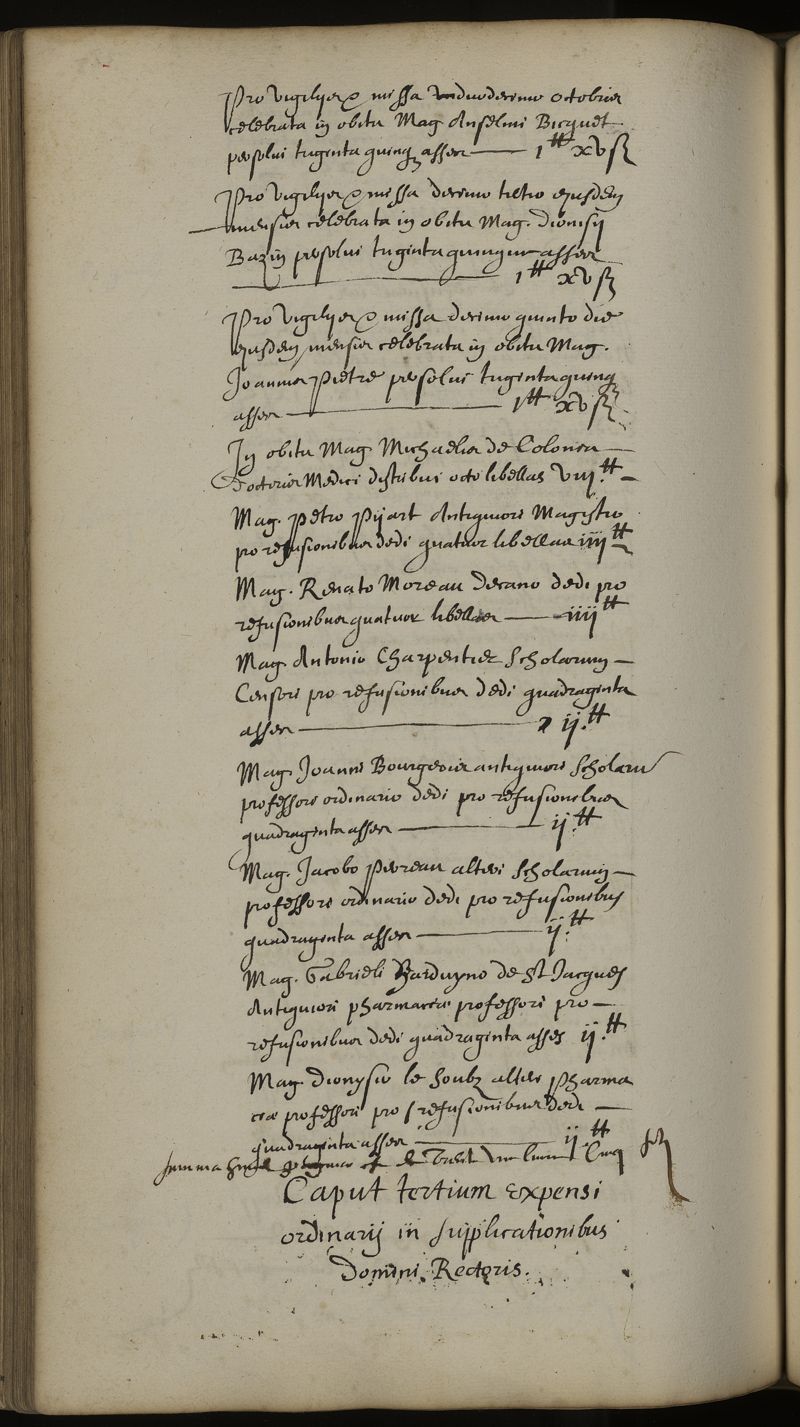 Pro vigilijs & missa duodecimo octobris
celebrata in obitu Mag Anselmi Bicquet
persolui triginta quinq asses — 1 ₶ xv ß
Pro vigilijs & missa decimo tertio ejusdem
mensis celebrata in obitu Mag. dionisij
Bazin persolui triginta quinque asses
1 ₶ xv ß
Pro vigilijs & missa decimo quinto die
ejusdem mensis celebrata in obitu Mag.
Joannis Pietre persolui triginta quinq
asses — 1 ₶ xv ß
In obitu Mag Michaelis de Colonia —
doctoris Medici distribui octo libellas viij.₶ —
Mag. petro pijart Antiquiori Magistro
pro refusionibus dedi quatuor libellas iiij ₶
Mag. Renato Moreau decano dedi pro
refusionibus quatuor libellas — iiij ₶
Mag Antonio Charpentier scholarum —
Censori pro refusionibus dedi quadraginta
asses — ij.₶
Mag. Joanni Bourgeois antiquiori scholaru
professori ordinario dedi pro refusionibus
quadraginta asses — ij.₶
Mag. Jacobo perreau alteri scholarum —
professori ordinario dedi pro refusionibus
quadraginta asses — ij.₶
Mag. Gabrieli Harduyno de St Jacques
Antiquiori pharmaciæ professori pro —
refusionibus dedi quadraginta asses ij.₶
Mag. dionysio le soubz alteri pharma
ciæ professori pro refusionibus dedi —
quadraginta asses — ij ₶
summa
Caput tertium expensi
ordinarij in supplicationibus
Domini Rectoris.